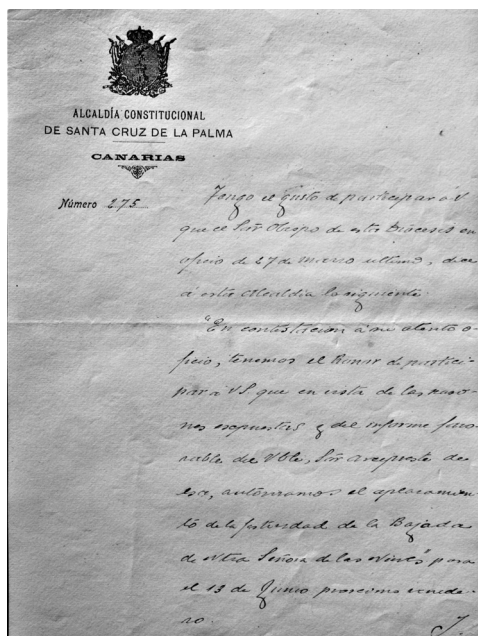 ALCALDÍA CONSTITUCIONAL
DE SANTA CRUZ DE LA PALMA
CANARIAS
Número 275
Tengo el gusto de participar á V
que el Sor Obispo de esta Diócesis en
oficio de 27 de Marzo último, dice
á esta Alcaldía lo siguiente:
"En contestación á su atento o-
ficio, tenemos el honor de partici-
par á VS. que en vista de las razo-
nes expuestas y del informe favo-
rable del Vble, Sor Arcipreste de
esa, autorizamos el aplazamien-
to de la festividad de la Bajada
de Ntra Señora de las Nieves para
el 13 de Junio proximo venide-
ro.